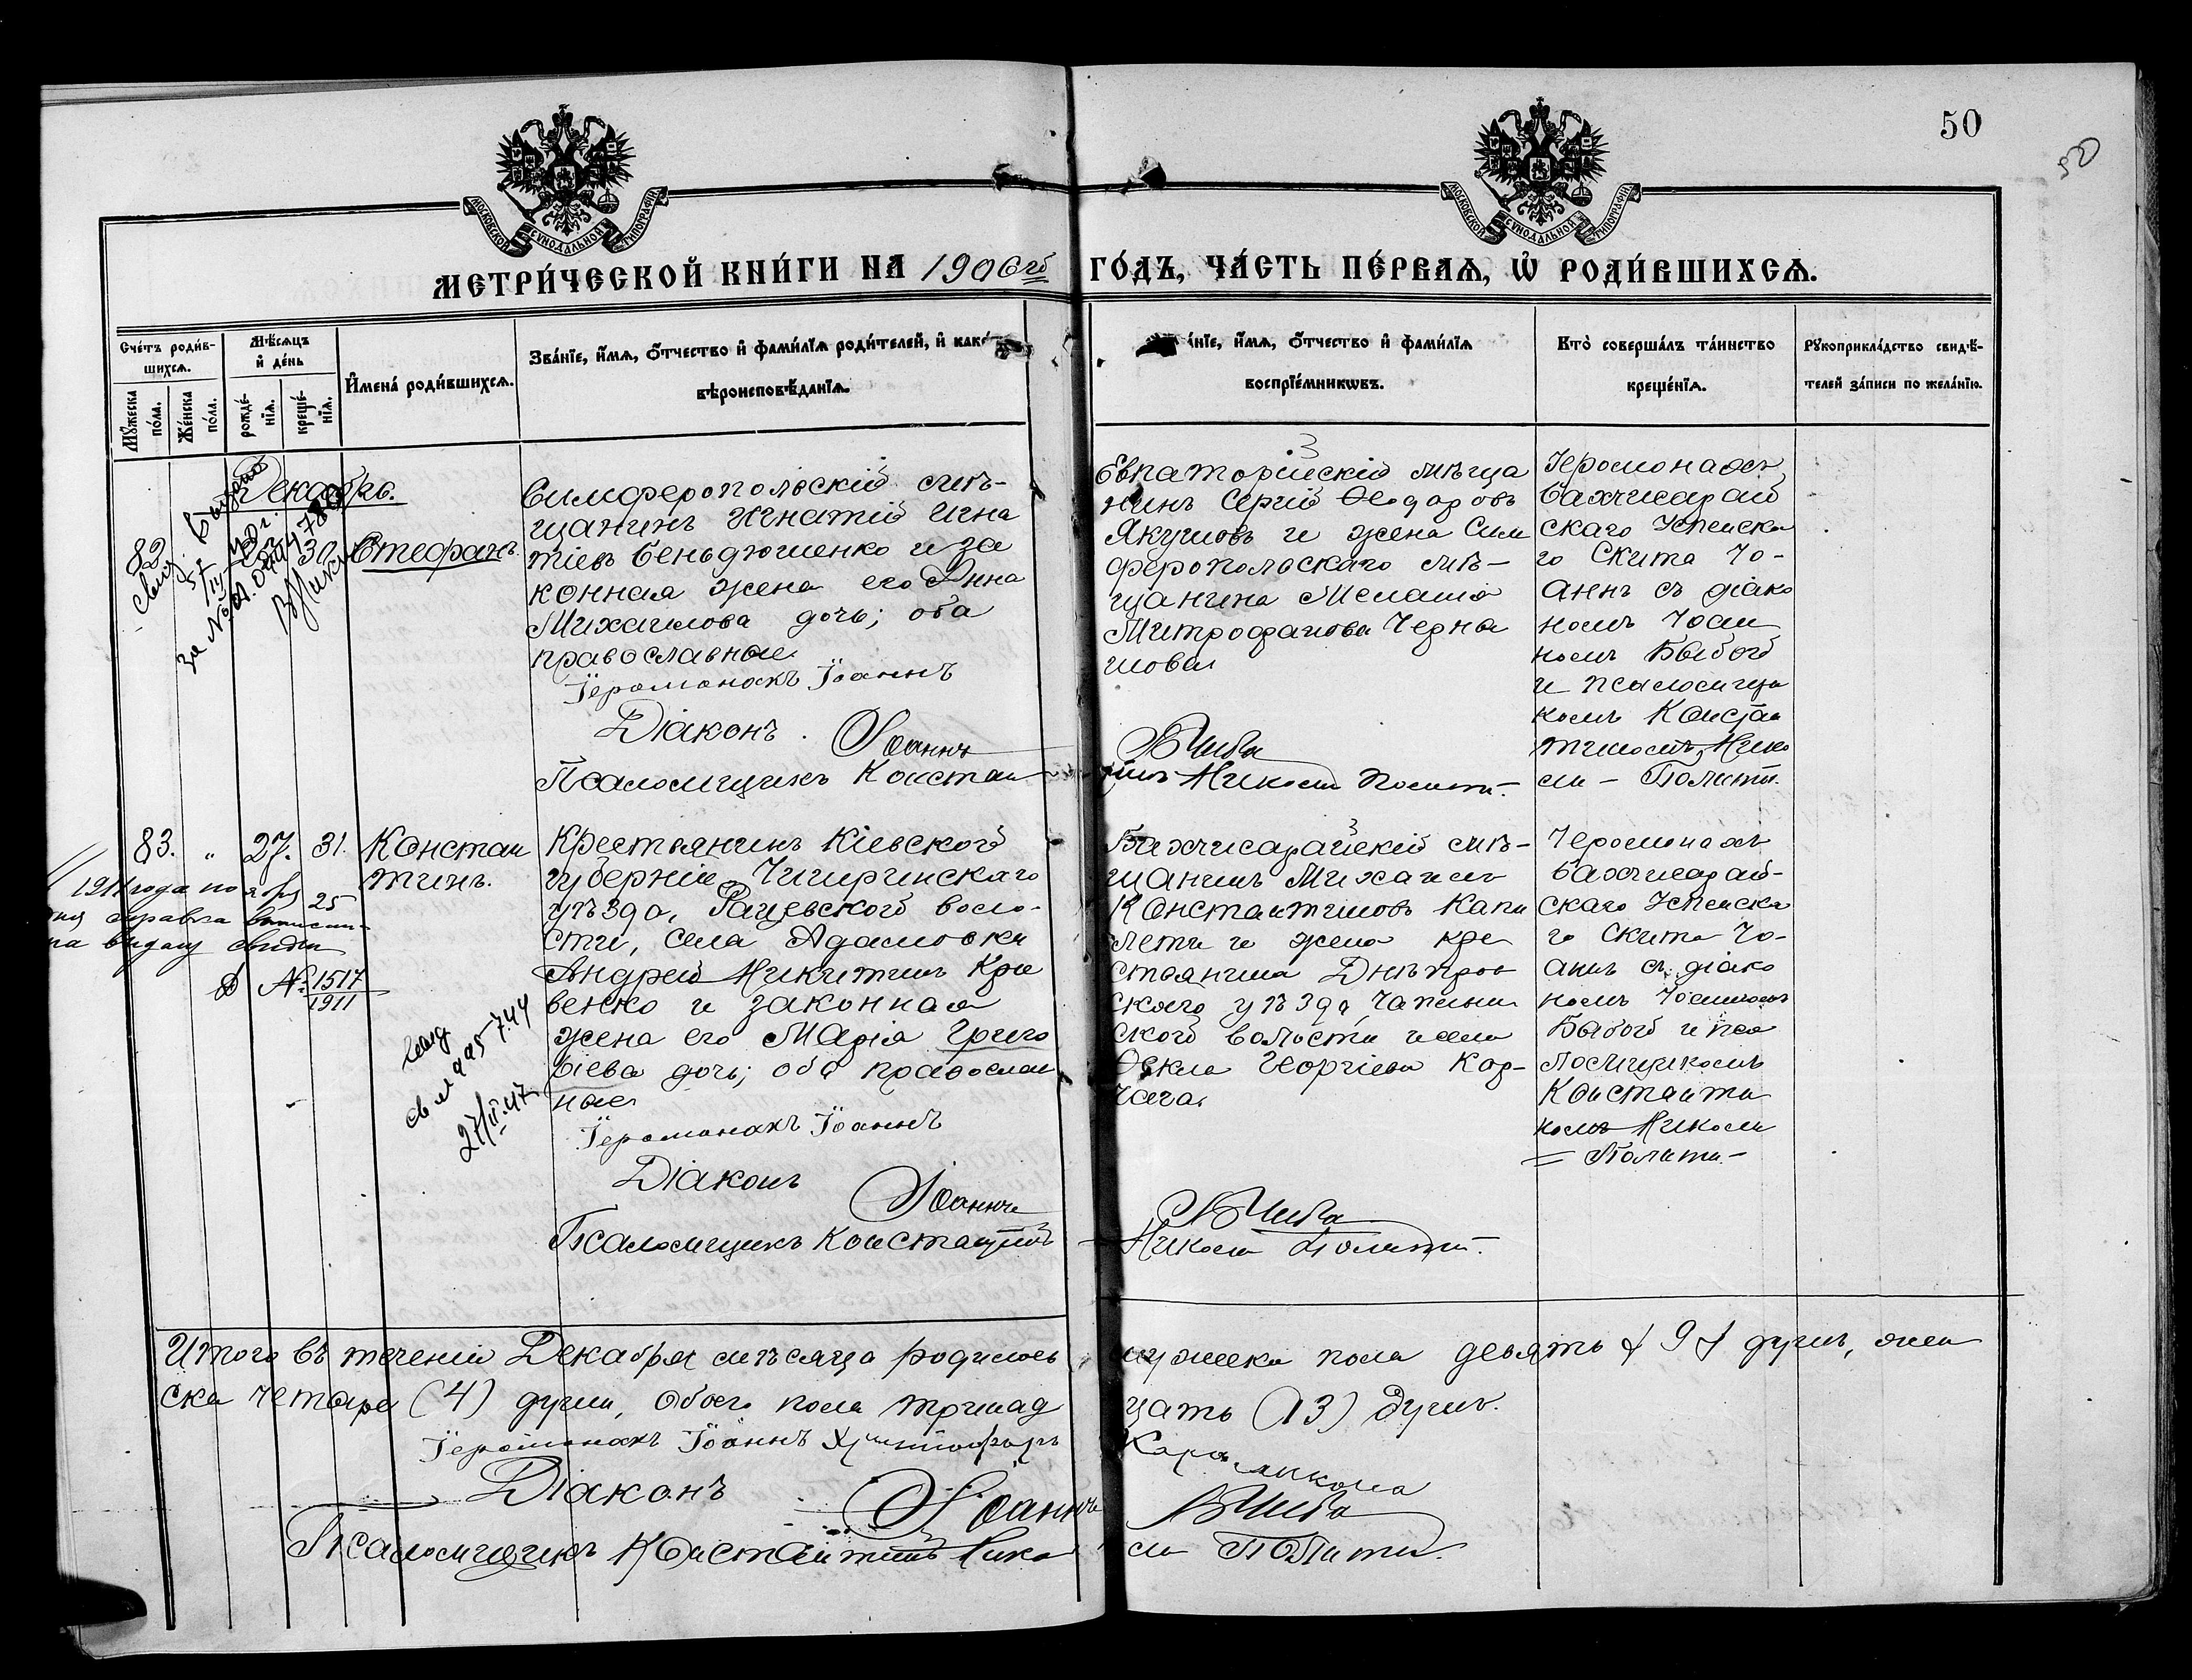 50
50
МОСКОВСКОЙ СѴНОДАЛЬНОЙ ТИПОГРАФІИ
МОСКОВСКОЙ СѴНОДАЛЬНОЙ ТИПОГРАФІИ
МЕТРИ́ЧЕСКОЙ КНИ́ГИ НА 1906 й ГО́ДЪ, ЧА́СТЬ ПЕ́РВАѦ, Ѡ҆ РОДИ́ВШИХСѦ.
Сче́тъ роди́в-
шихсѧ.
Мꙋ́жеска по́ла.
Же́нска по́ла.
Мѣ́сѧцъ
и҆ де́нь
рожде́-
нїѧ.
креще́-
нїѧ.
И҆мена̀ роди́вшихсѧ.
Зва́нїе, и҆́мѧ, ѻ҆́тчество и҆ фами́лїѧ роди́телей, и҆ как
вѣроисповѣ́данїѧ.
нїе, и҆́мѧ, ѻ҆́тчество и҆ фами́лїѧ
воспрїе́мникѡвъ.
Кто̀ соверша́лъ та́инство
креще́нїѧ.
Рꙋкоприкла́дство свидѣ́-
телей за́писи по жела́нїю.
Декабрь.
82
30
Стефанъ.
Симферопольскій мѣ-
щанинъ Игнатій Игна
тіевъ Бендюженко и за
конная жена его Анна
Михаилова дочь; оба
православные
Іеромонахъ Іоаннъ
Діаконъ Іоаннъ
Псаломщикъ Констан
Евпаторійскій мѣща
нинъ Сергій Ѳеодоровъ
Якушовъ и жена Сим
феропольскаго мѣ-
щанина Меланія
Митрофанова Черны
шова
тинъ Николи Полити.
Іеромонахъ
Бахчисарай
скаго Успенска
го Скита Іо-
аннъ съ діако
номъ Іоан
номъ Быбой
и псаломщи
комъ Констан
тиномъ Нико
ли - Полити.
83. " 27. 31.
Констан
тинъ.
1911 года ноября 25
дня справка
на выдачу
№ 1517
1911
27/II 47
Крестьянинъ Кіевской
губерніи, Чигиринскаго
уѣзда, Рацевской воло-
сти, села Адамовки
Андрей Никитинъ Кри
венко и законная
жена его Марія Григо
ріева дочь; оба православ
ные
Іеромонахъ Іоаннъ
Діаконъ Іоаннъ
Псаломщикъ Константинъ
Бахчисарайскій мѣ-
щанинъ Михаилъ
Константиновъ Капи
лети и жена кре
стьянина Днѣпров
скаго уѣзда, Чаплин
ской волости
Ѳекла Георгіева Кор-
Николи Полити.
Іеромонахъ
Бахчисарай-
скаго Успенска
го Скита Іо-
аннъ съ діако
номъ Іоанномъ
Быбой и пса
ломщикомъ
Константи
номъ Николи
= Полити. -
Итого въ теченіи Декабря мѣсяца родилось мужска пола девять (9) душъ, жен
ска четыре (4) души, обоего пола тринад цать (13) душъ.
Іеромонахъ Іоаннъ Христофоръ
Діаконъ Іоаннъ
Псаломщикъ Константинъ Нико ли Полити.